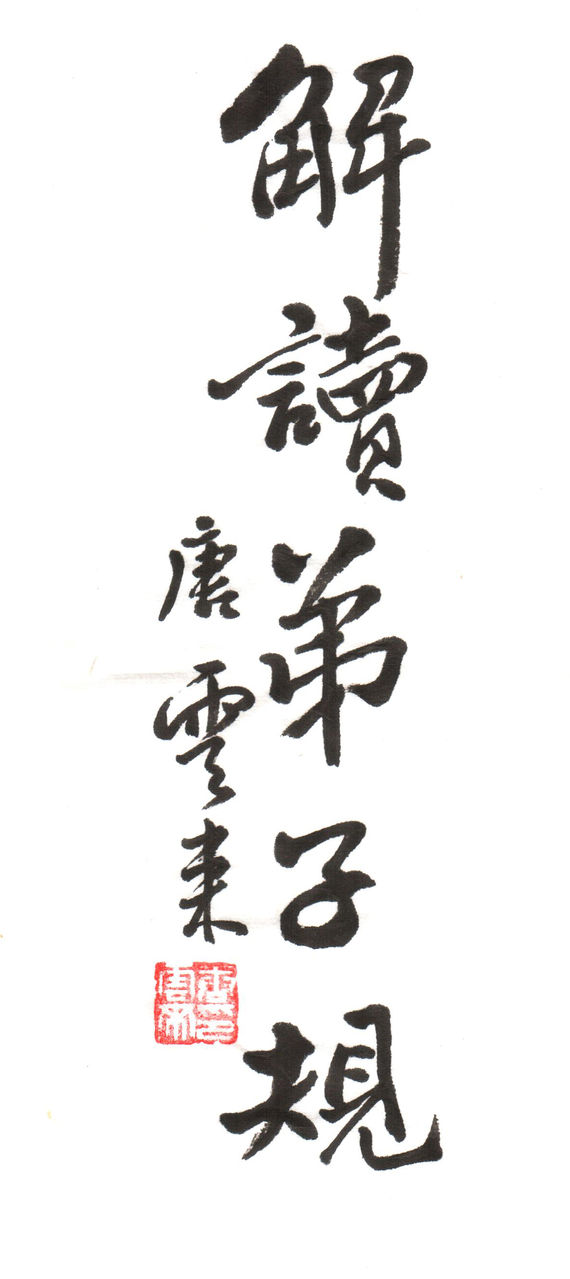 解讀弟子規
唐雲來